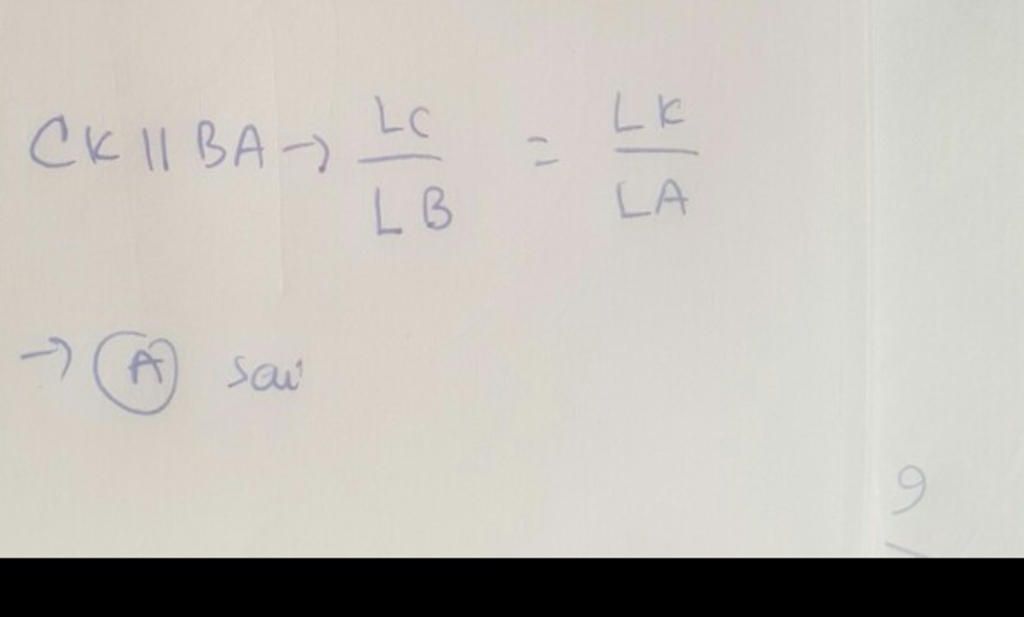 CK || BA → LC / LB = LK / LA
→ A sai
9